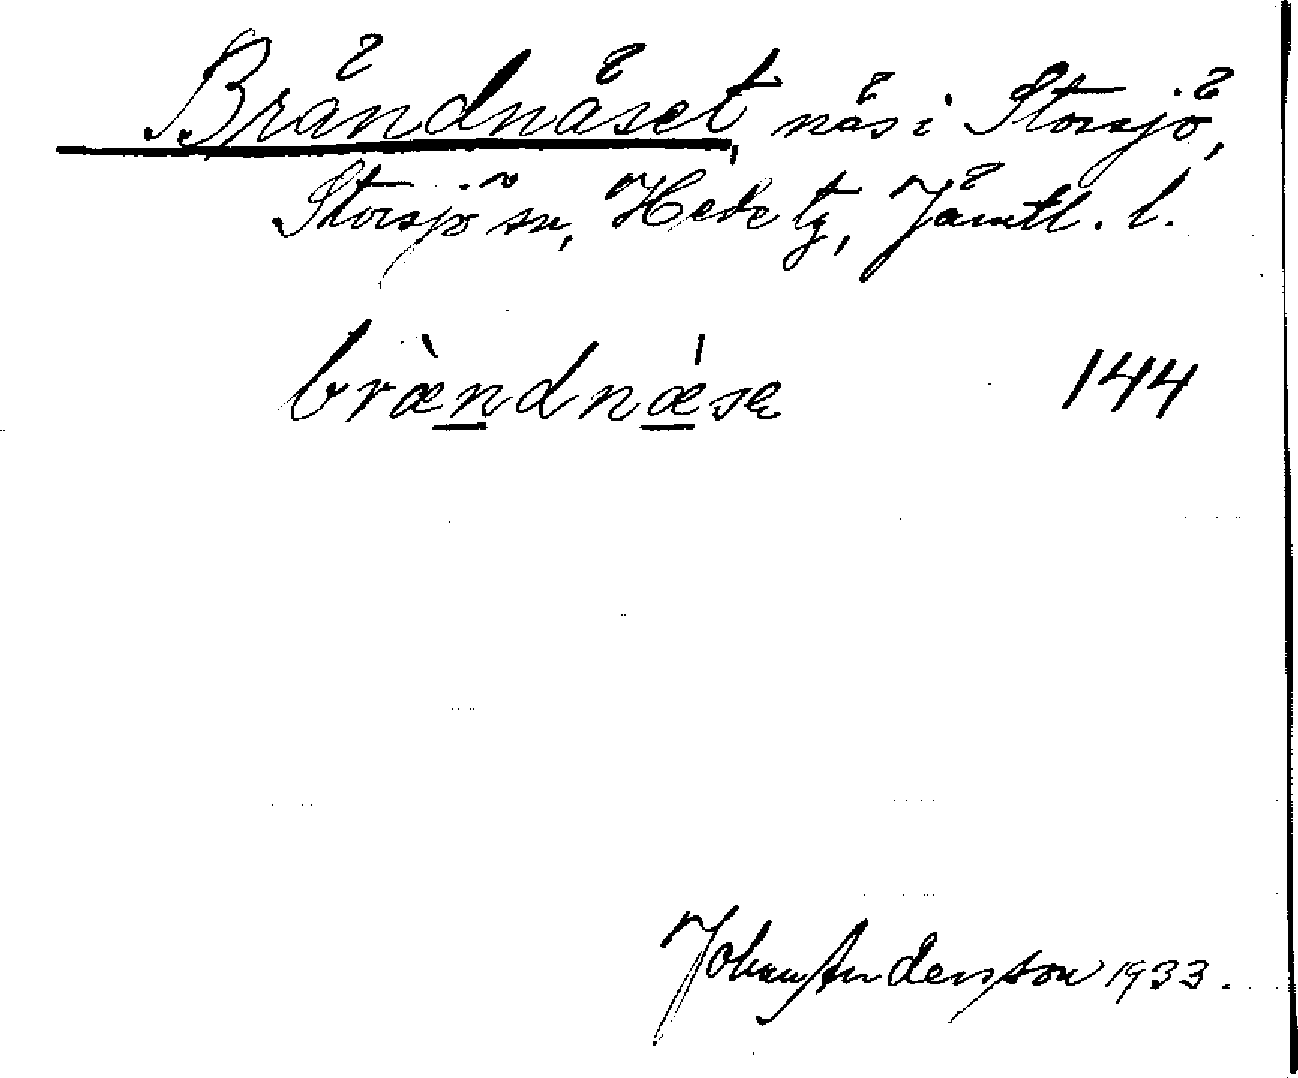 Brändnäset, näs i Storsjö,
Storsjö sn, Hede tg, Jämtl. l.
bræ̀ndnǽsæ 144
Johan Andersson 1933.